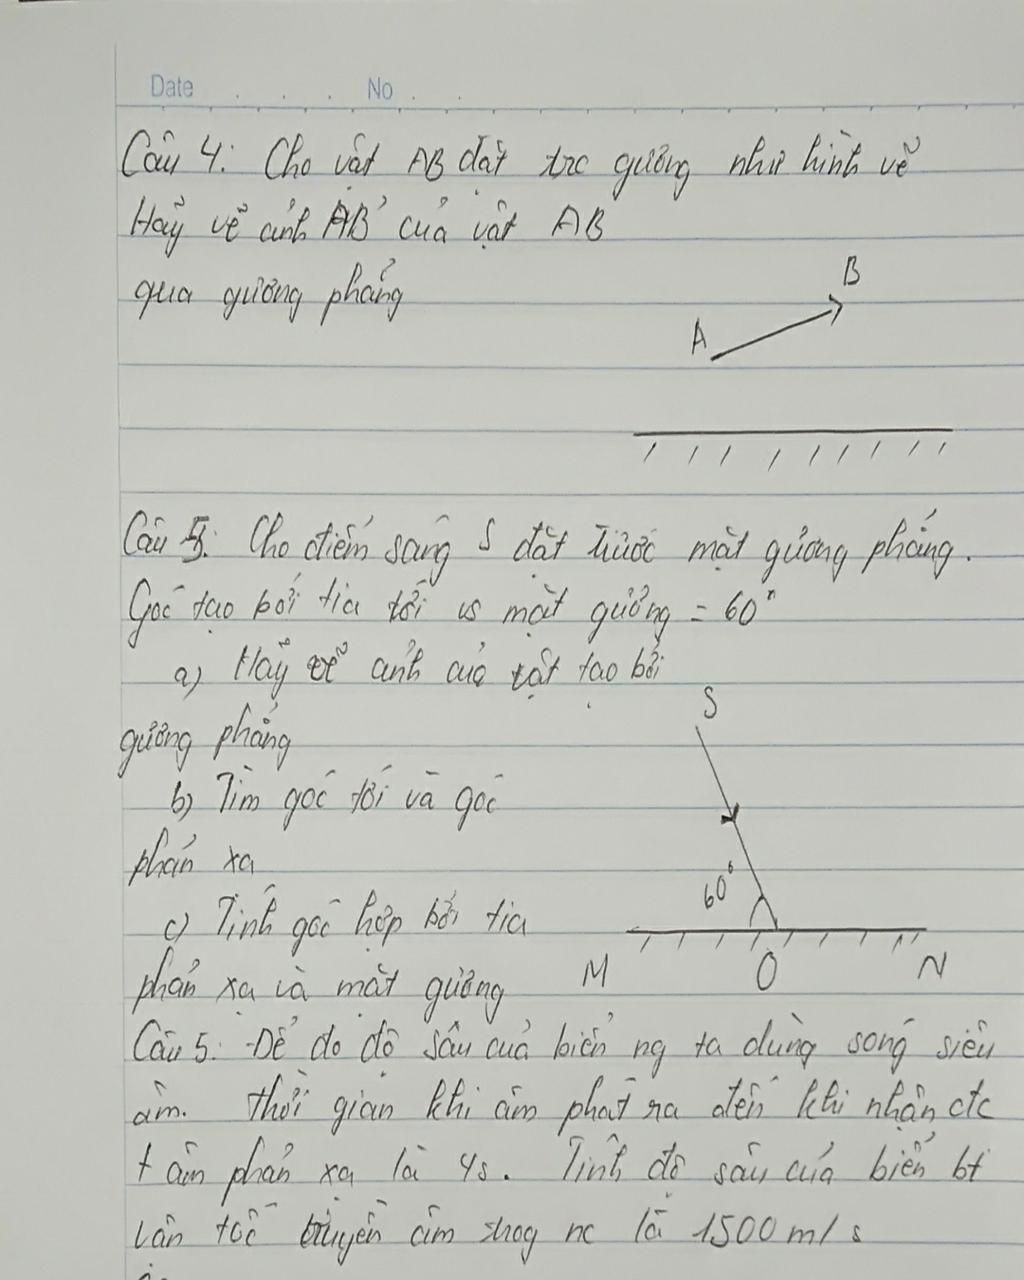 Date No
Câu 4: Cho vật AB đặt trc gương như hình vẽ
Hãy vẽ ảnh A'B' của vật AB
qua gương phẳng
B
A
Câu 5: Cho điểm sáng S đặt trước mặt gương phẳng.
Góc tạo bởi tia tới vs mặt gương = 60°
a) Hãy vẽ ảnh của vật tạo bởi
S
gương phẳng
b) Tìm góc tới và góc
phản xạ
60°
c) Tính góc hợp bởi tia
phản xạ và mặt gương
M O N
Câu 5: Để đo độ sâu của biển ng ta dùng sóng siêu
âm. Thời gian khi âm phát ra đến khi nhận đc
t âm phản xạ là 4s. Tính độ sâu của biển bt
vận tốc truyền âm trog nc là 1500 m/s